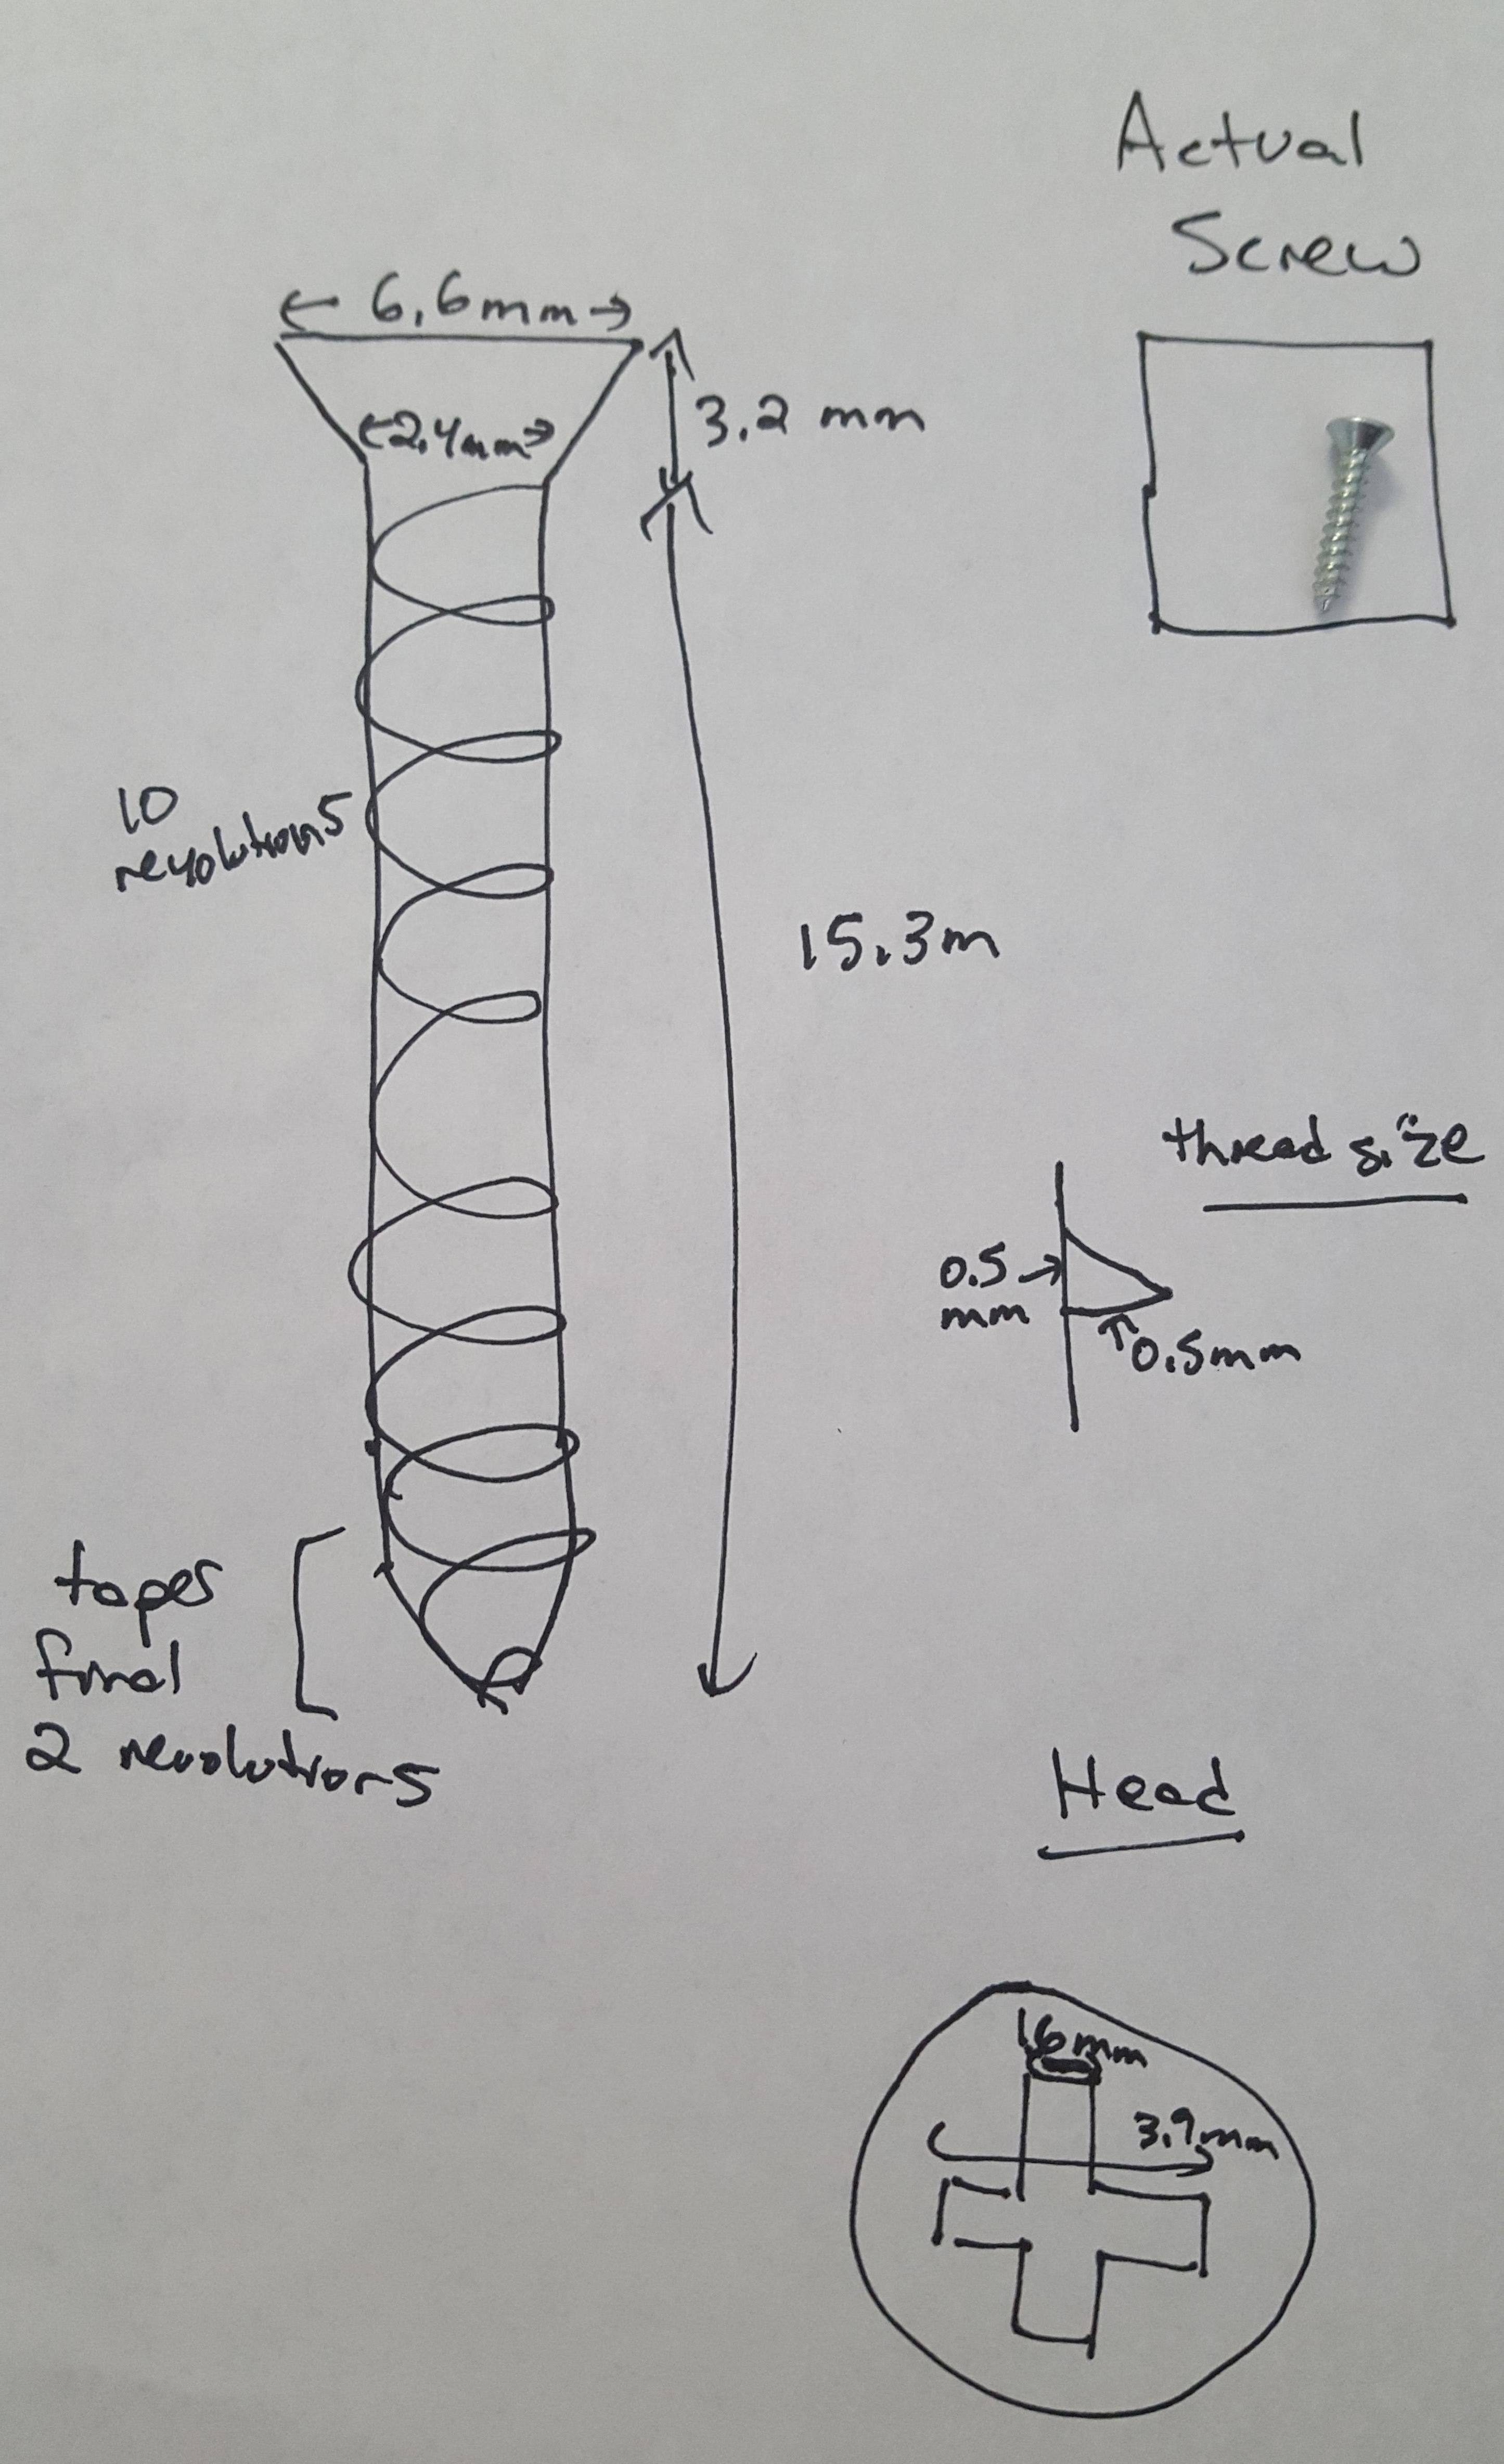 Actual
Screw
6.6mm
2.4mm
3.2 mm
10
revolutions
15.3m
thread size
0.5
mm
0.5mm
taper
final
2 revolutions
Head
1.6mm
3.9mm